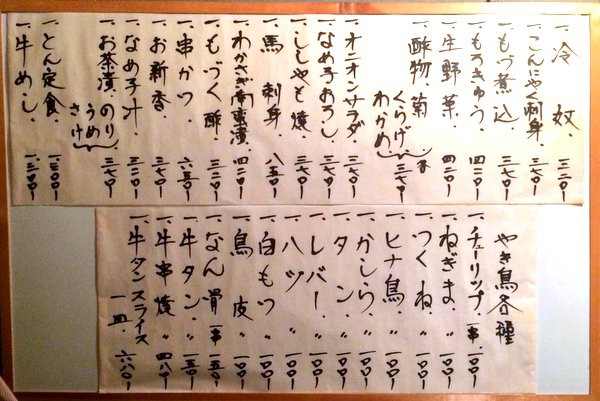 一、冷奴、三二〇-
一、こんにゃく刺身、三七〇-
一、もつ煮込、三七〇-
一、もろきゅう、四二〇-
一、生野菜、四二〇-
一、酢物、菊、くらげ、わかめ 各三七〇-
一、オニオンサラダ、三七〇-
一、なめ子おろし、三七〇-
一、ししゃも焼、三七〇-
一、馬刺身、八五〇-
一、わかさぎ南蛮漬、四二〇-
一、もづく酢、三二〇-
一、串かつ、六五〇-
一、お新香、三二〇-
一、なめ子汁、三二〇-
一、お茶漬、のり、うめ、さけ 三七〇-
一、とん定食、一、三〇〇-
一、牛めし、一、三〇〇-
やき鳥各種
一、チューリップ、一串、一〇〇-
一、ねぎま、〃一〇〇-
一、つくね、〃一〇〇-
一、ヒナ鳥、〃一〇〇-
一、かしら、〃一〇〇-
一、タン、〃一〇〇-
一、レバー、〃一〇〇-
一、ハツ、〃一〇〇-
一、白もつ、〃一〇〇-
一、鳥皮、〃一〇〇-
一、なん骨一串一五〇-
一、牛タン、〃一五〇-
一、牛串焼、〃四八〇-
一、牛タンスライス一皿、六八〇-